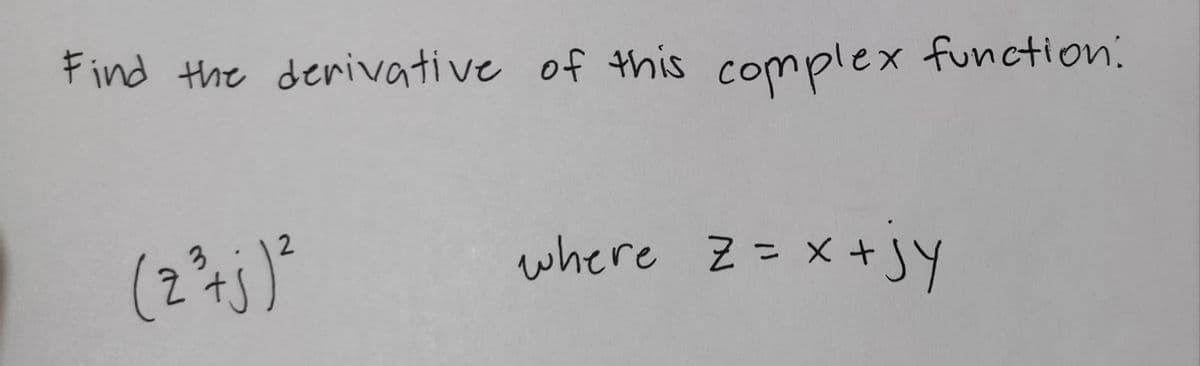 Find the derivative of this complex function:
(z³+j)² where z = x + jy